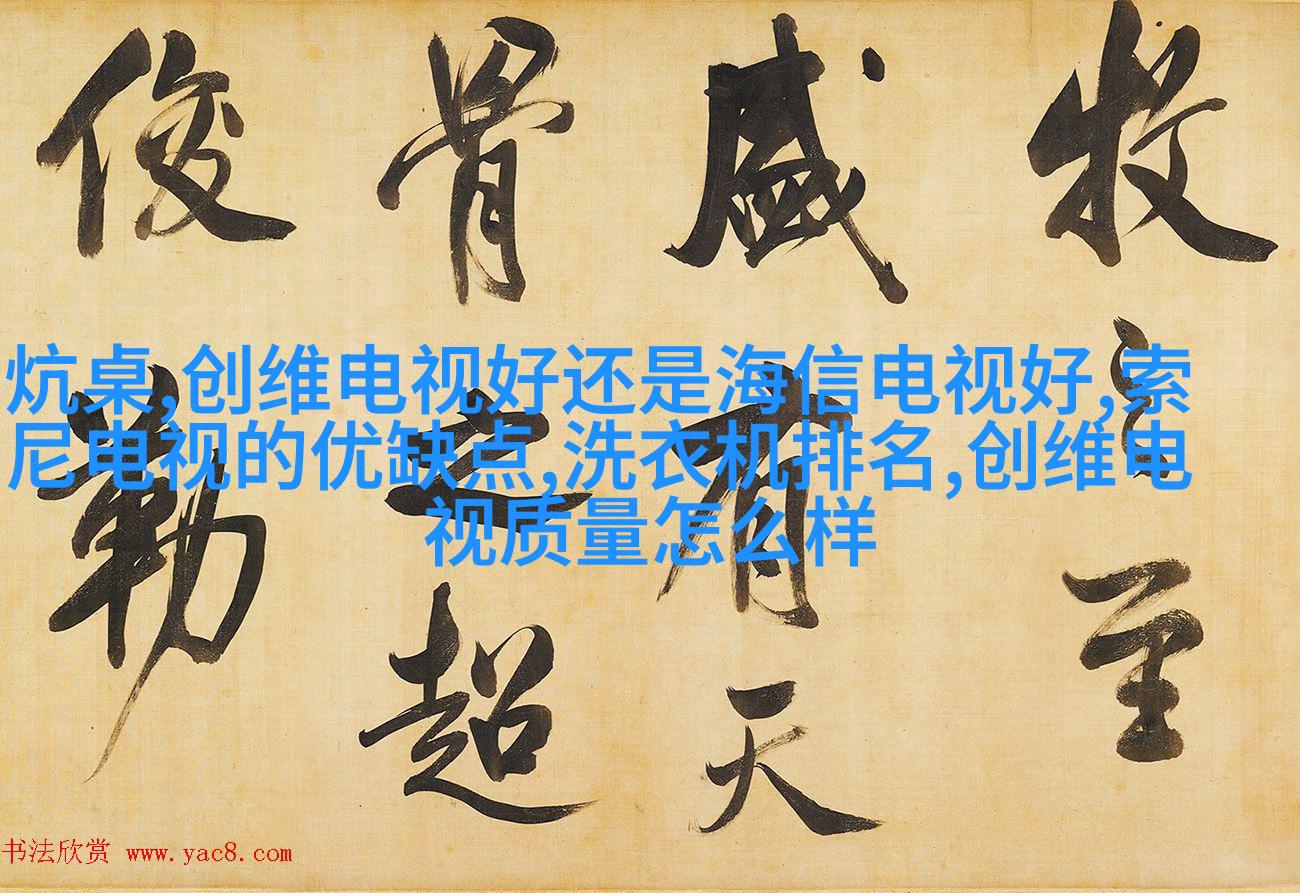 牧之至
盛有天
骨之超
俊勒
炕桌,创维电视好还是海信电视好,索
尼电视的优缺点,洗衣机排名,创维电
视质量怎么样
书法欣赏 www.yac8.com